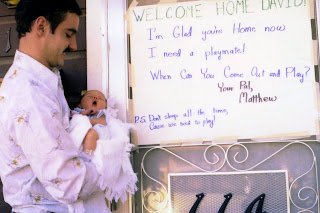 WELCOME HOME DAVID!
I'm Glad you're Home now
I need a playmate!
When Can You Come Out and Play?
Your Pal,
Matthew
P.S. Don't sleep all the time,
Cause we need to play!